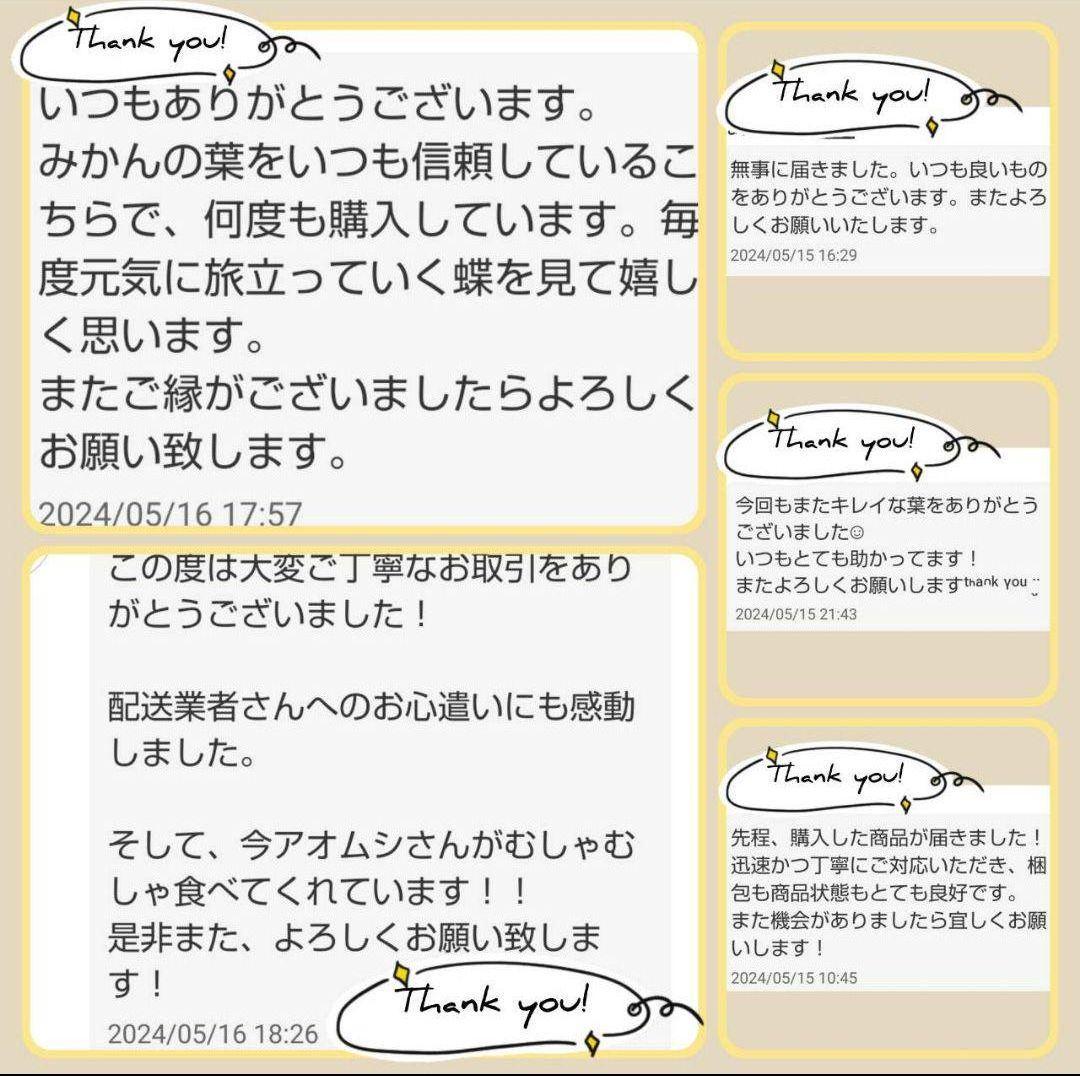 Thank you!
いつもありがとうございます。
みかんの葉をいつも信頼しているこ
ちらで、何度も購入しています。毎
度元気に旅立っていく蝶を見て嬉し
く思います。
またご縁がございましたらよろしく
お願い致します。
2024/05/16 17:57
この度は大変ご丁寧なお取引をあり
がとうございました！
配送業者さんへのお心遣いにも感動
しました。
そして、今アオムシさんがむしゃむ
しゃ食べてくれています！！
是非また、よろしくお願い致しま
す！
2024/05/16 18:26
Thank you!
Thank you!
無事に届きました。いつも良いもの
をありがとうございます。またよろ
しくお願いいたします。
2024/05/15 16:29
Thank you!
今回もまたキレイな葉をありがとう
ございました☺
いつもとても助かってます！
またよろしくお願いしますᵗʱᵃᵑᵏ ᵞᵒᵘ ¨̮
2024/05/15 21:43
Thank you!
先程、購入した商品が届きました！
迅速かつ丁寧にご対応いただき、梱
包も商品状態もとても良好です。
また機会がありましたら宜しくお願
いします！
2024/05/15 10:45